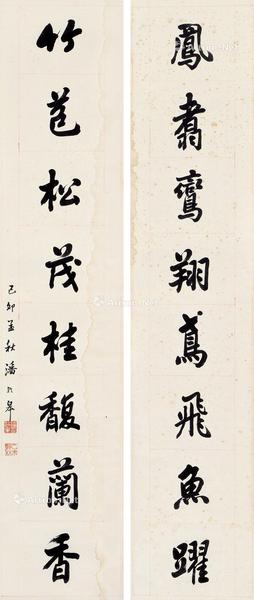 鳳翥鸞翔鳶飛魚躍
竹苞松茂桂馥蘭香
己卯孟秋潘齡皋